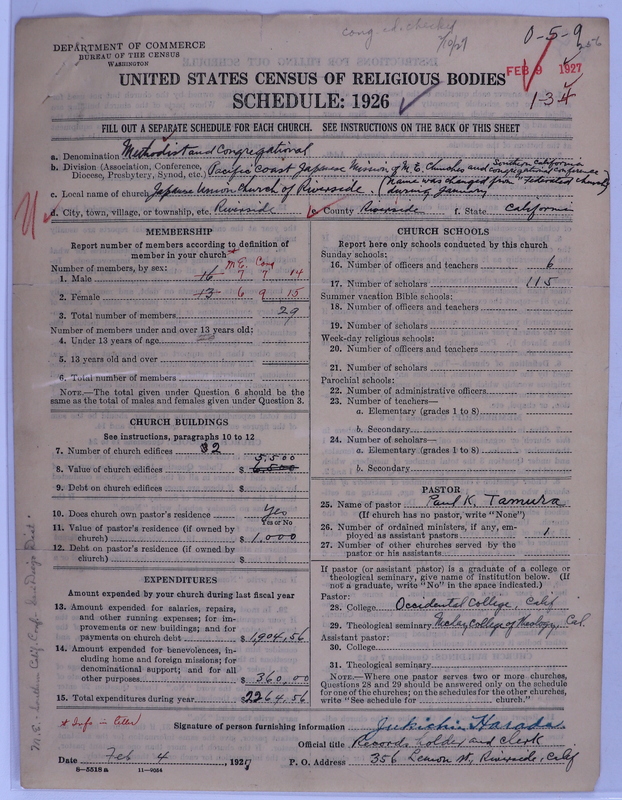 cong. ch. checked
10/27
0-5-9
256
DEPARTMENT OF COMMERCE
BUREAU OF THE CENSUS
WASHINGTON
UNITED STATES CENSUS OF RELIGIOUS BODIES
FEB 9 1927
SCHEDULE: 1926
1-3-4
FILL OUT A SEPARATE SCHEDULE FOR EACH CHURCH. SEE INSTRUCTIONS ON THE BACK OF THIS SHEET
a. Denomination Methodist and Congregational
b. Division (Association, Conference, Diocese, Presbytery, Synod, etc.) Pacific Coast Japanese Mission of M. E. Churches and Southern California Congregational Conference
c. Local name of church Japanese Union Church of Riverside. (Name was changed from "Federated church" during January)
d. City, town, village, or township, etc. Riverside e. County Riverside f. State California
MEMBERSHIP
Report number of members according to definition of member in your church *
M.E. Cong
Number of members, by sex:
1. Male 16 7 7 14
2. Female 13 6 9 15
3. Total number of members 29
Number of members under and over 13 years old:
4. Under 13 years of age
5. 13 years old and over
6. Total number of members
NOTE.—The total given under Question 6 should be the same as the total of males and females given under Question 3.
CHURCH BUILDINGS
See instructions, paragraphs 10 to 12
7. Number of church edifices 2
5,500
8. Value of church edifices $ 6,500
9. Debt on church edifices $
10. Does church own pastor's residence Yes
Yes or No
11. Value of pastor's residence (if owned by church) $ 1,000
12. Debt on pastor's residence (if owned by church) $
EXPENDITURES
Amount expended by your church during last fiscal year
13. Amount expended for salaries, repairs, and other running expenses; for improvements or new buildings; and for payments on church debt $ 1,904,56
14. Amount expended for benevolences, including home and foreign missions; for denominational support; and for all other purposes $ 360,00
15. Total expenditures during year $ 2264,56
CHURCH SCHOOLS
Report here only schools conducted by this church
Sunday schools:
16. Number of officers and teachers 6
17. Number of scholars 115
Summer vacation Bible schools:
18. Number of officers and teachers
19. Number of scholars
Week-day religious schools:
20. Number of officers and teachers
21. Number of scholars
Parochial schools:
22. Number of administrative officers
23. Number of teachers—
a. Elementary (grades 1 to 8)
b. Secondary
24. Number of scholars—
a. Elementary (grades 1 to 8)
b. Secondary
PASTOR
25. Name of pastor Paul K. Tamura
(If church has no pastor, write "None")
26. Number of ordained ministers, if any, employed as assistant pastors 1
27. Number of other churches served by the pastor or his assistants
If pastor (or assistant pastor) is a graduate of a college or theological seminary, give name of institution below. (If not a graduate, write "No" in the space indicated.)
Pastor:
28. College Occidental College, Calif
29. Theological seminary McClay College of Theology, Cal.
Assistant pastor:
30. College
31. Theological seminary
NOTE.—Where one pastor serves two or more churches, Questions 28 and 29 should be answered only on the schedule for one of the churches; on the schedules for the other churches, write "See schedule for church."
* Info in letter
Signature of person furnishing information Jukichi Harada
Official title Records holder and clerk
Date Feb 4, 1927 P. O. Address 356 Lemon st, Riverside, Calif
8—5518 a 11—9054
M.E. - Southern Calif. Conf. San Diego Dist.